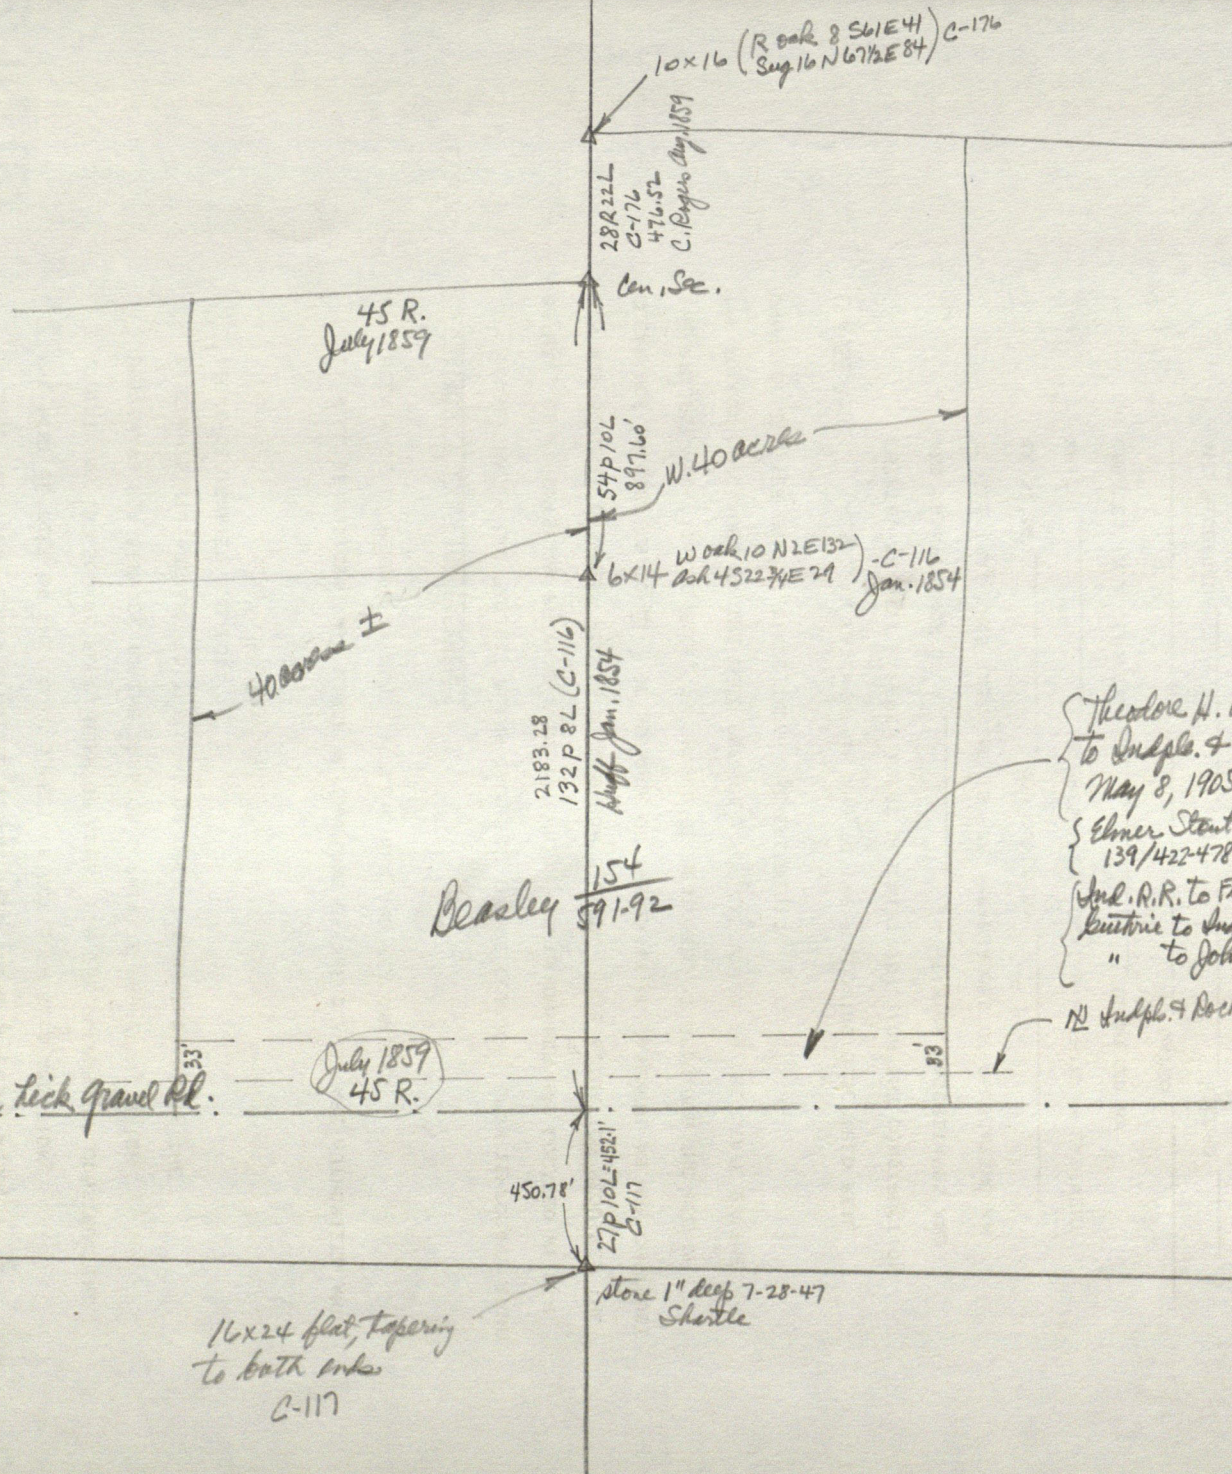 10x16 (R oak 8 S61E41) C-176
Sug 16 N67½E84
28R22L
C-176
476.52
C. Rogers Aug. 1859
Cen. Sec.
45 R.
July 1859
54P10L
897.60'
W. 40 acres
6x14 W oak 10 N2E132) -C-116
Ash 4 S22¾E29 Jan. 1854
40 acres ±
2183.28
132P8L (C-116)
Huff Jan, 1854
Theodore H.
to Indpls. &
May 8, 1905
Elmer Stout
139/422-478
Ind. R.R. to
Guthrie to
" to
Beasley 154
591-92
N Indpls. &
33'
33'
July 1859
45 R.
Lick Gravel Rd.
450.78'
27P10L=452.1'
C-117
stone 1" deep 7-28-47
Shartle
16x24 flat, tapering
to both ends
C-117